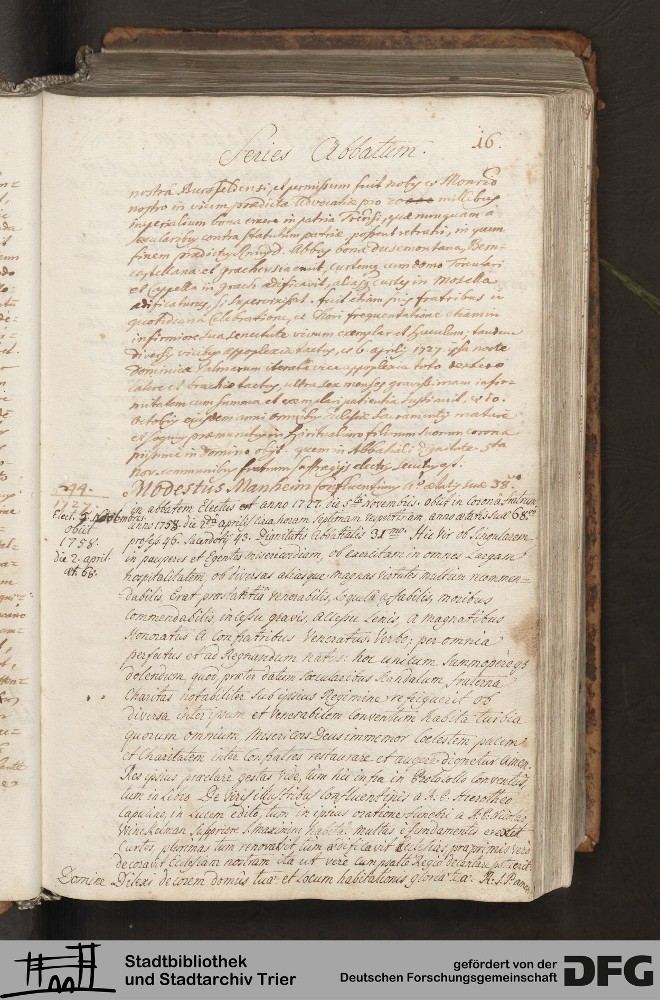 16.
Series Abbatum.
nostrâ Bursfeldensi, et permissum fuit nobis et Mon
nostro in vicum prædicta Advocatia pro millibus
imperialium bona emere in patria Trevirensi, quæ nunquam a
sæcularibus contra statutum patriæ possent retrahi, in quem
finem prædictus Abbas bona Dusemontana, Bern-
castellana et grachensia emit, curtemq cum domo Torculari
et Capella in grach ædificavit, aliasq curtes in Mosella
ædificaturus, si supervixisset. fuit etiam pius fratribus in
quotidiana Celebratione, et Chori frequentatione etiam in
infirmiore sua senectute vivum exemplar et speculum; tandem
diversis vicibus appoplexia tactus, et 6. aprilis 1727. ipsa nocte
Dominicæ Palmarum iterata vice appoplexia toto dextero
latere et brachio tactus, ultra sex menses gravissimam infir-
mitatem cum summa et exemplari patientia sustinuit, et 10.
Octobris ejusdem anni omnibus Ecclesiæ Sacramentis mature
et præmunitus in spirituali filiorum suorum corona
piissime in Domino obijt. quem in Abbatiali dignitate 5ta
Nov. communibus fratrum suffragijs electus secutus est.
44.
1727
Elect. 5. Novembris
obiit
1758.
die 2. april.
æt. 68.
Modestus Manheim Confluentinus ætatis suæ 38.
in abbatem Electus est anno 1727. die 5ta Novembris. obiit in corona fratrum
anno 1758. die 2da aprilis circa horam septimam vespertinam anno ætatis suæ 68
profess. 46. Sacerdotij 43. Dignitatis Abbatialis 31mo. Hic vir ob Singularem
in pauperes et Egentes misericordiam, ob exercitam in omnes Largam
hospitalitatem, ob diversas aliasque magnas virtutes multum recommen-
dabilis Erat, præstantia Venerabilis, Loquela affabilis, moribus
Commendabilis, incessu gravis, accessu Lenis, a magnatibus
Honoratus a Confratribus Veneratus. Verbo: per omnia
perfectus et ad Regnandum natus: hoc unicum summopere
dolendum, quod præter datum Sæcularibus scandalum, fraterna
Charitas notabiliter sub ipsius Regimine refriguerit ob
diversa inter ipsum et Venerabilem Conventum habita turbia
quorum omnium Misericors Deus immemor Coelestem pacem
et Charitatem inter Confratres restaurare et augere dignetur Amen.
Res ipsius præclare gestas vide, tum hic infra in Protocollo Conventus,
tum in Libro De Viris illustribus Confluentinis a R. P. Hierotheo
Capucino, in Lucem edito, tum in ipsius oratione funebri a R. P. Nicolao
Winckelman Suppriore S. Maximini habita. multas e fundamentis erexit
Curtes plurimas tum renovavit tum ædificavit Ecclesias præprimis vero
decoravit Ecclesiam nostram ita ut vere cum psalte Regio decantare potuerit:
Domine Dilexi decorem domus tuæ et Locum habitationis gloriæ tuæ. R. I. P. amen.
Stadtbibliothek
und Stadtarchiv Trier
gefördert von der
Deutschen Forschungsgemeinschaft
DFG